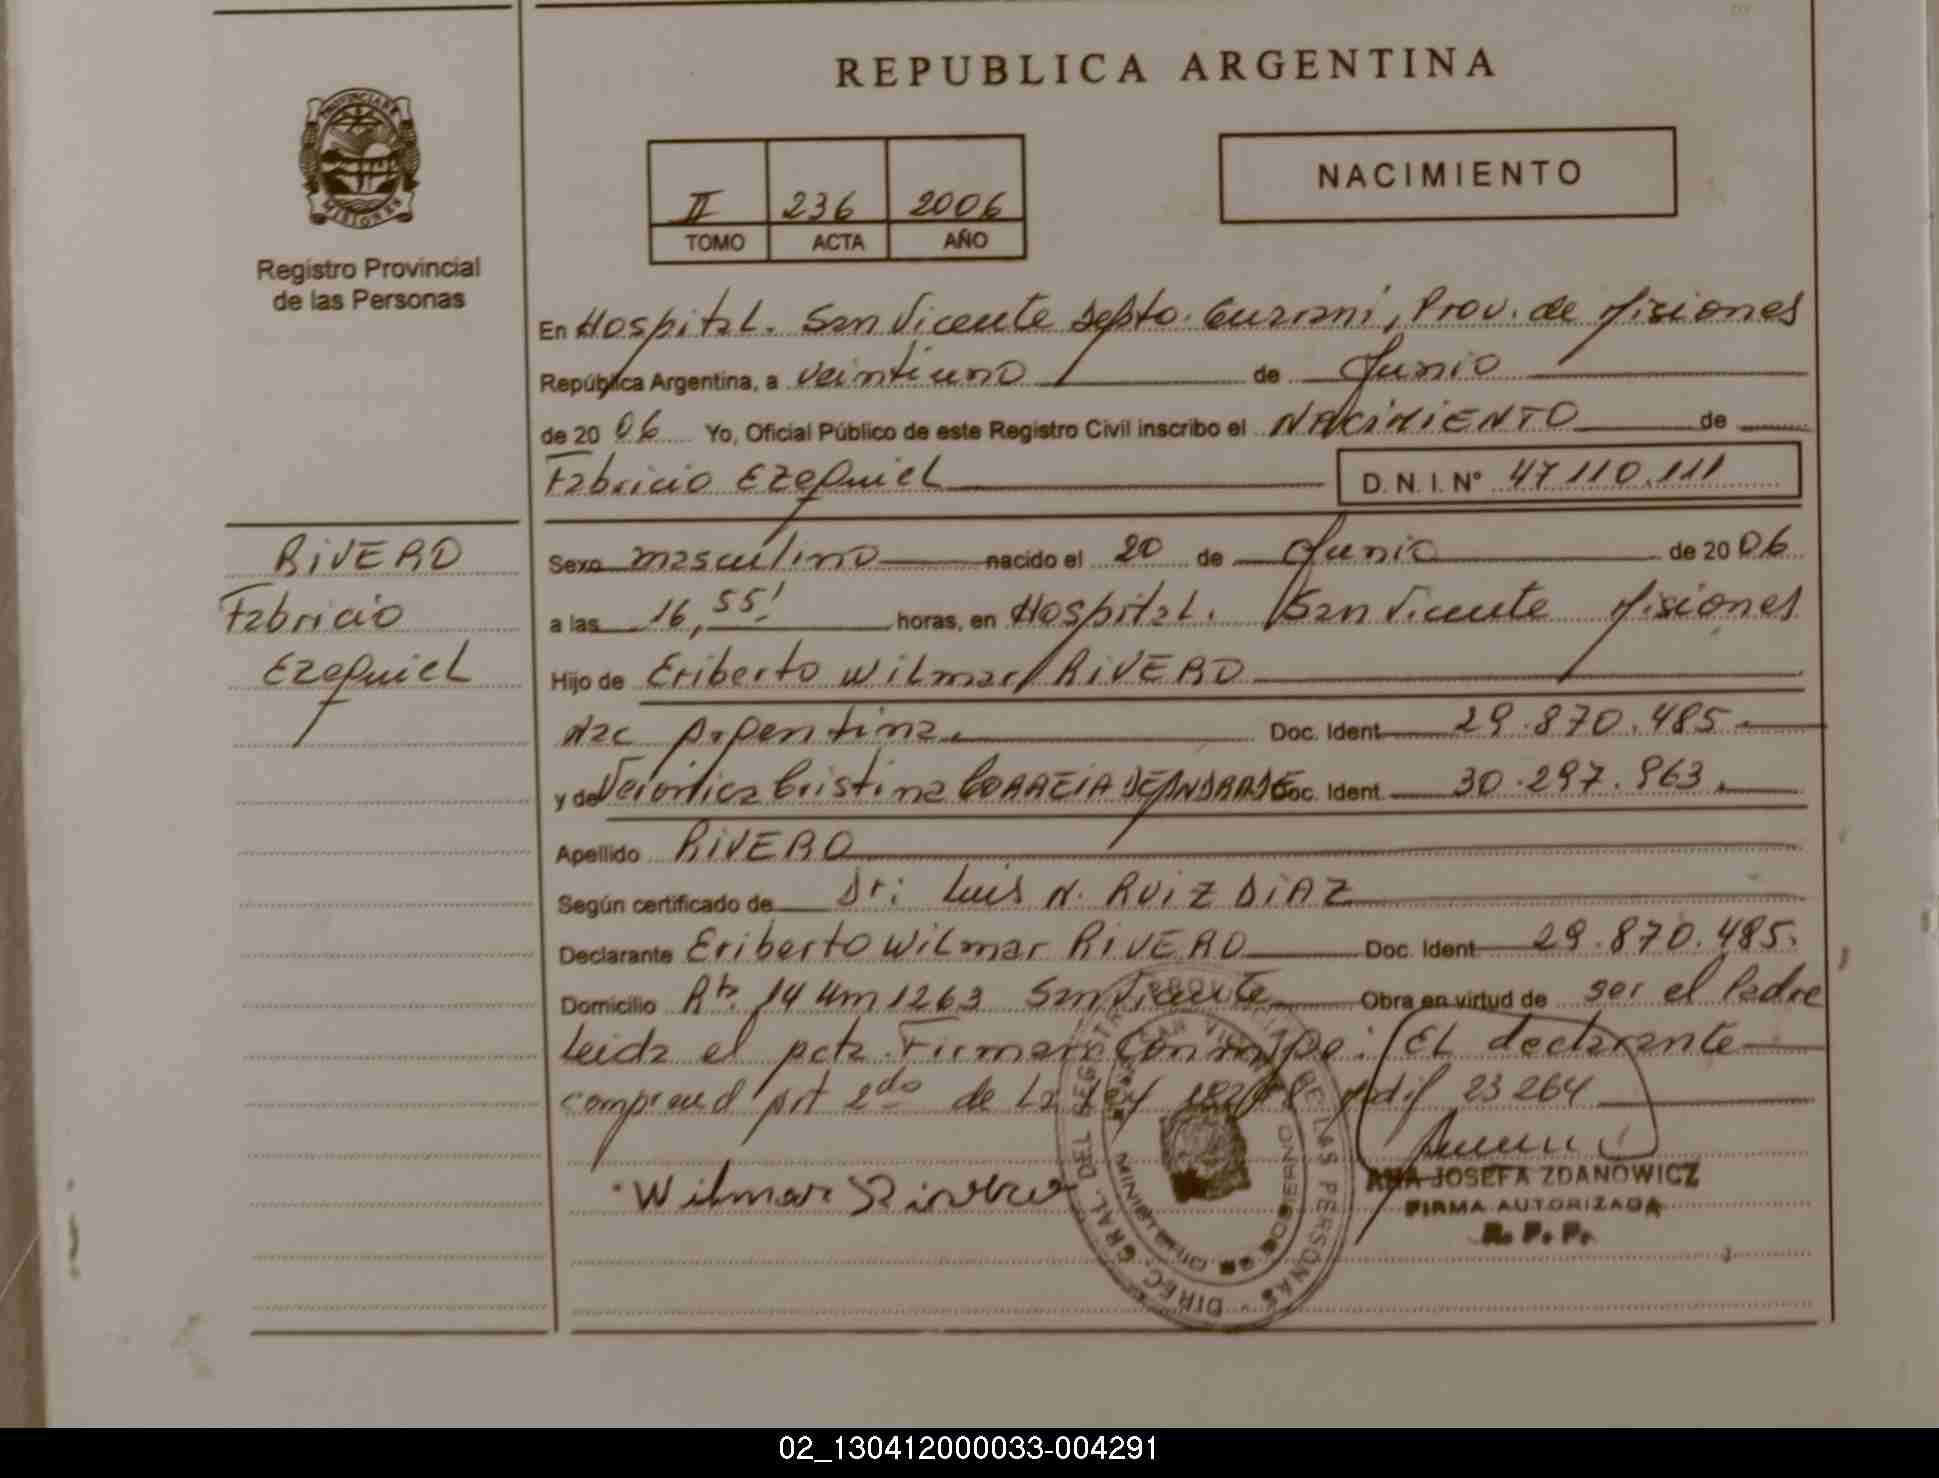 REPUBLICA ARGENTINA
PROVINCIA DE
MISIONES
Registro Provincial
de las Personas
II 236 2006
TOMO ACTA AÑO
NACIMIENTO
En Hospital. San Vicente Depto. Guarani, Prov. de Misiones
República Argentina, a veintiuno de Junio
de 20 06 Yo, Oficial Público de este Registro Civil inscribo el NACIMIENTO de
Fabricio Ezequiel D. N. I. Nº 47110.111
RIVERO
Fabricio
Ezequiel
Sexo masculino nacido el 20 de Junio de 20 06
a las 16,55' horas, en Hospital. San Vicente Misiones
Hijo de Eriberto Wilmar RIVERO
Nac Argentina. Doc. Ident 29.870.485
y de Veronica Cristina CORREIA DE ANDRADE Doc. Ident 30.297.963.
Apellido RIVERO
Según certificado de Dr: Luis N. RUIZ DIAZ
Declarante Eriberto Wilmar RIVERO Doc. Ident 29.870.485.
Domicilio Rta. 14 Km 1263 San Vicente Obra en virtud de ser el Padre
Leida el Acta. Firman Conmigo: El declarante
comprend Art 2do de La Ley 18248 Modif 23264
Wilmar Rivero
ANA JOSEFA ZDANOWICZ
FIRMA AUTORIZADA
R. P. P.
DIREC. GRAL. DEL REGISTRO PROVINCIAL DE LAS PERSONAS
02_130412000033-004291